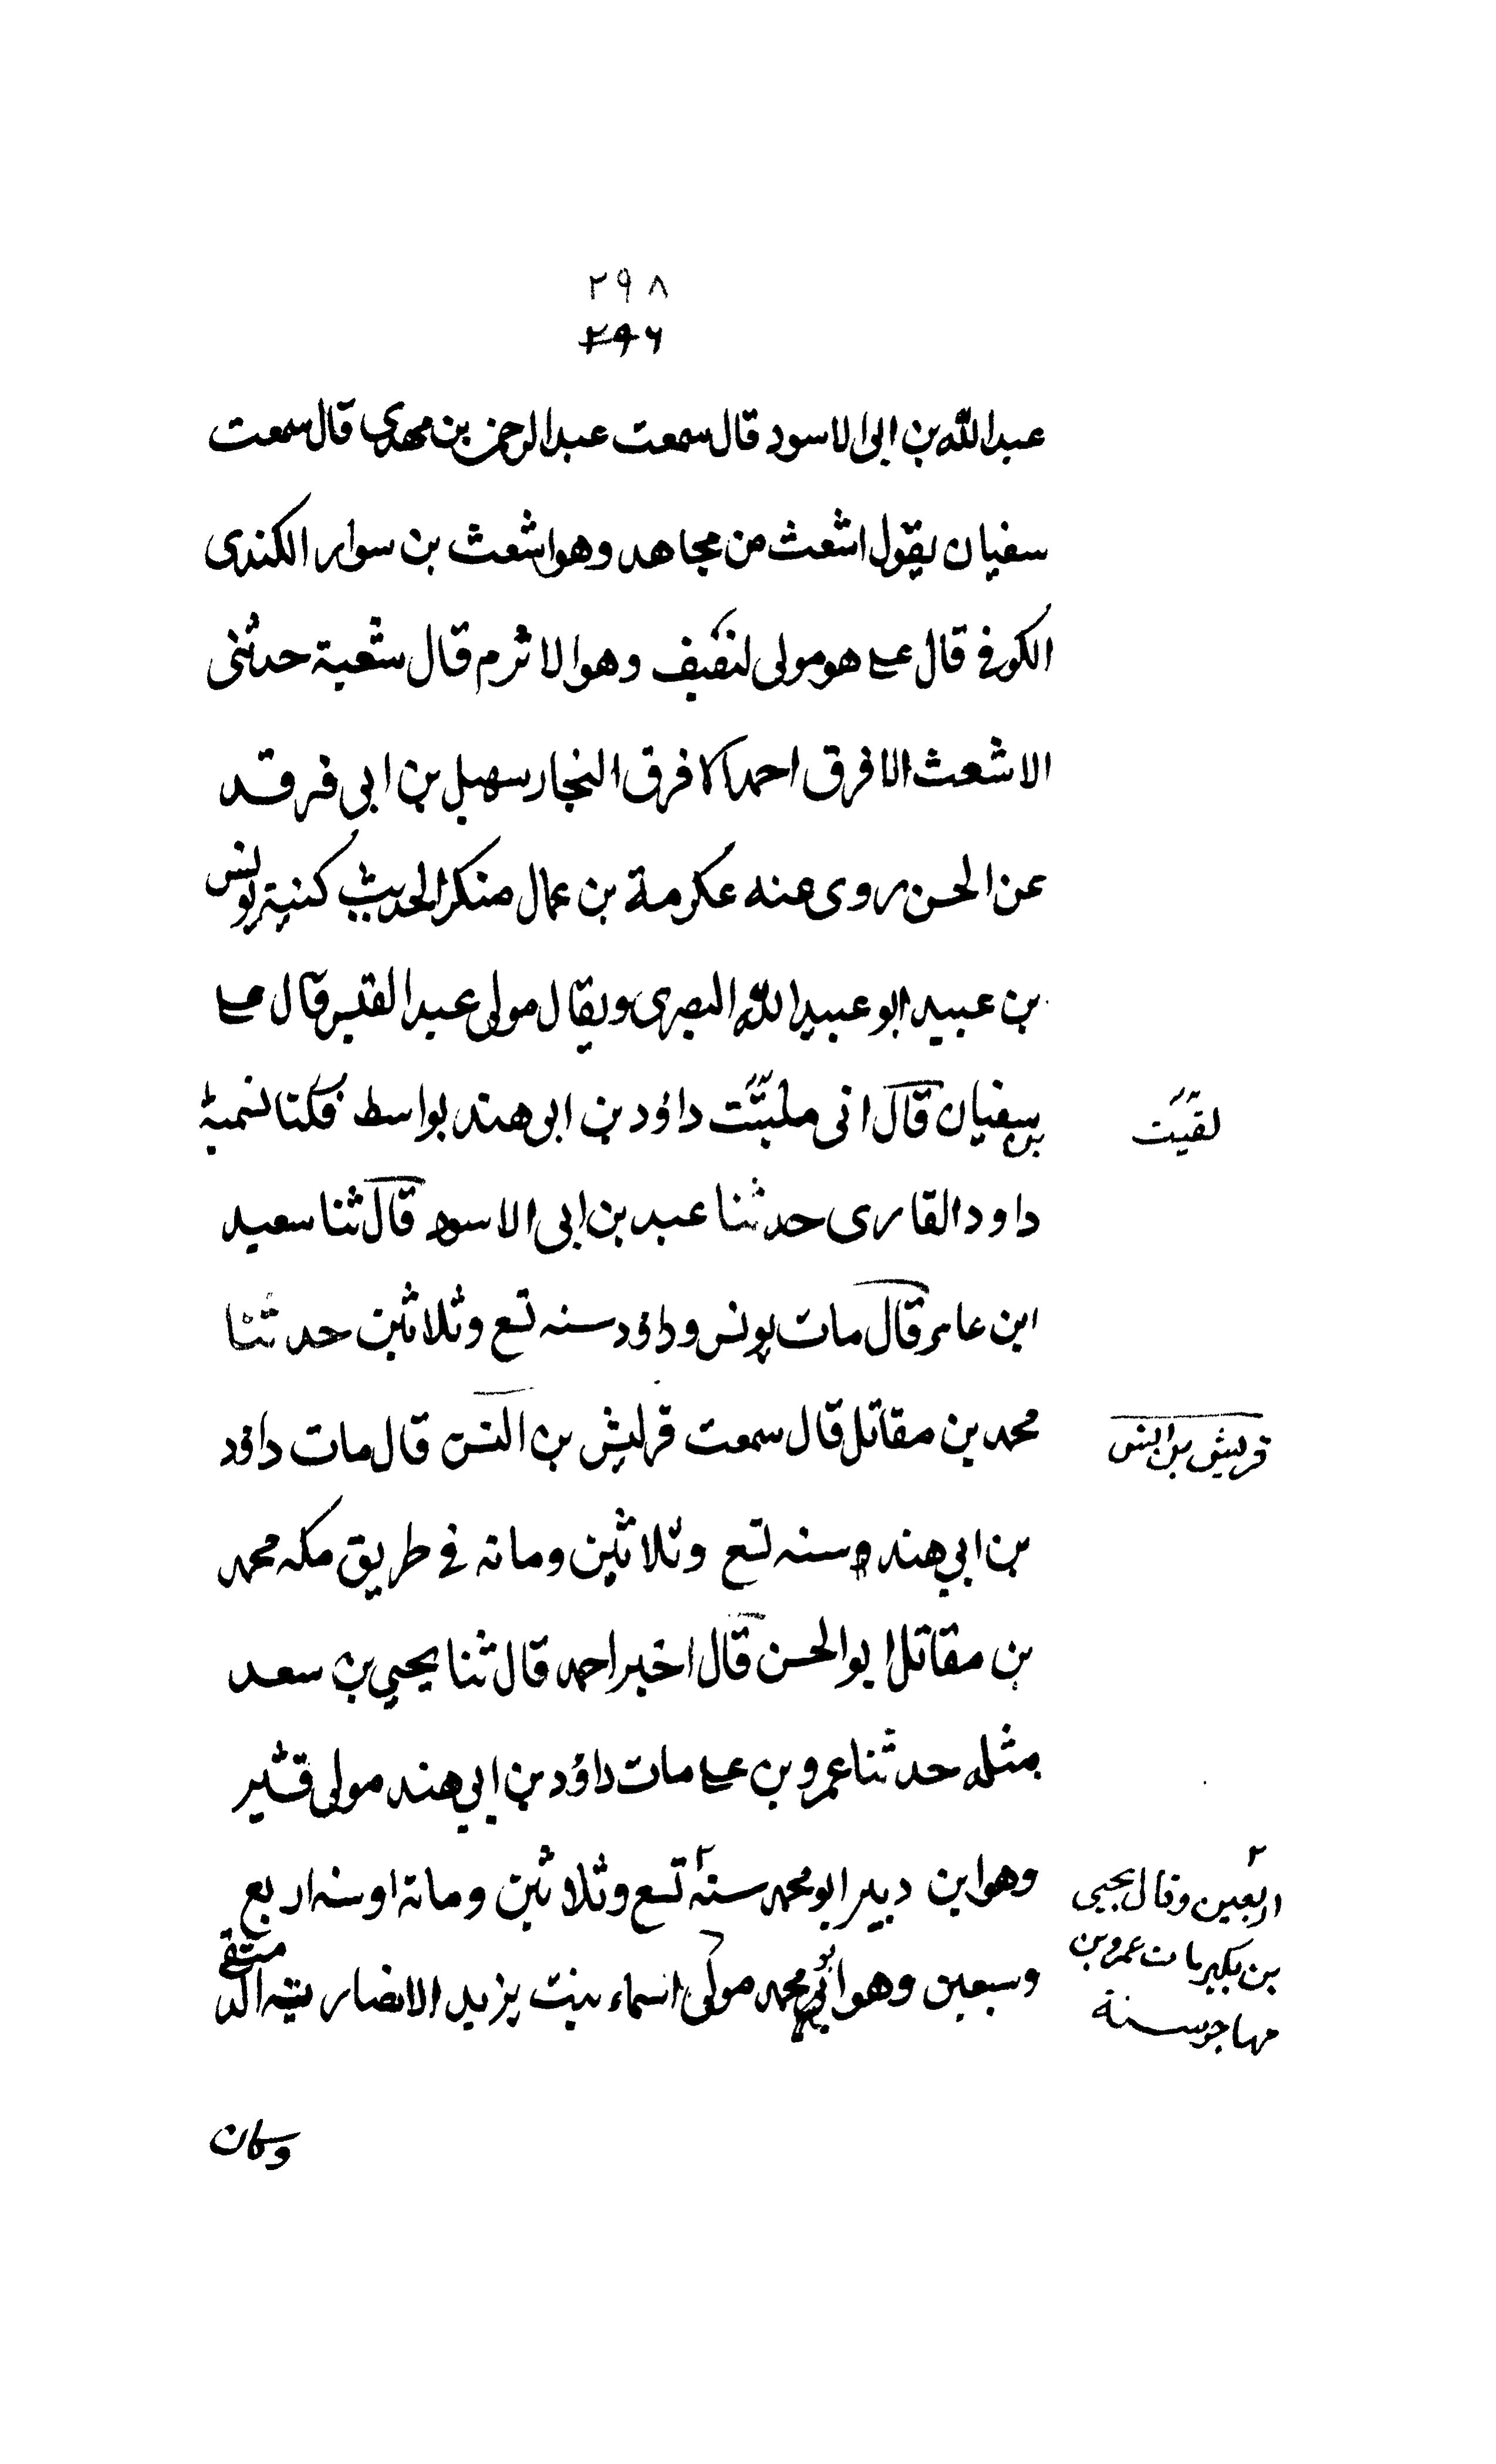 ٢٩٨
٢٩٦
عبدالله بن ابى الاسود قال سمعت عبدالرحمن بن مهدى قال سمعت
سفيان يقول اشعث من مجاهد وهو اشعث بن سوار الكندى
الكوفى قال على هو مولى لثقيف وهو الاثرم قال شعبة حدثنى
الاشعث الافرق احمد الافرق النجار سهيل بن ابى فرقد
عن الحسن روى عنه عكرمة بن عمار منكر الحديث كنيته يونس
بن عبيد ابو عبيد الله البصرى ويقال مولى عبد القيس قال على
سفيان قال انى داؤد بن ابى هند بواسط فكنا نسميه
لقيت
داود القارى حدثنا عبد بن ابى الاسود قال ثنا سعيد
ابن عامر قال مات يونس وداؤد سنه تسع وثلاثين حدثنا
محمد بن مقاتل قال سمعت قريش بن انس قال مات داؤد
قريش بن انس
بن ابى هند سنه تسع وثلاثين ومائه فى طريق مكه محمد
بن مقاتل ابو الحسن قال اخبر احمد قال ثنا يحيى بن سعد
مثله حدثنا عمرو بن على مات داؤد بن ابى هند مولى قشير
وهو ابن دينار ابو محمد سنة تسع وثلاثين ومائة او سنه اربع
وسبعين وهو ابو محمد مولى اسماء بنت يزيد الانصاريه
اربعين وقال يحيى
بن بكير مات عمرو بن
مهاجر سنة
وكان